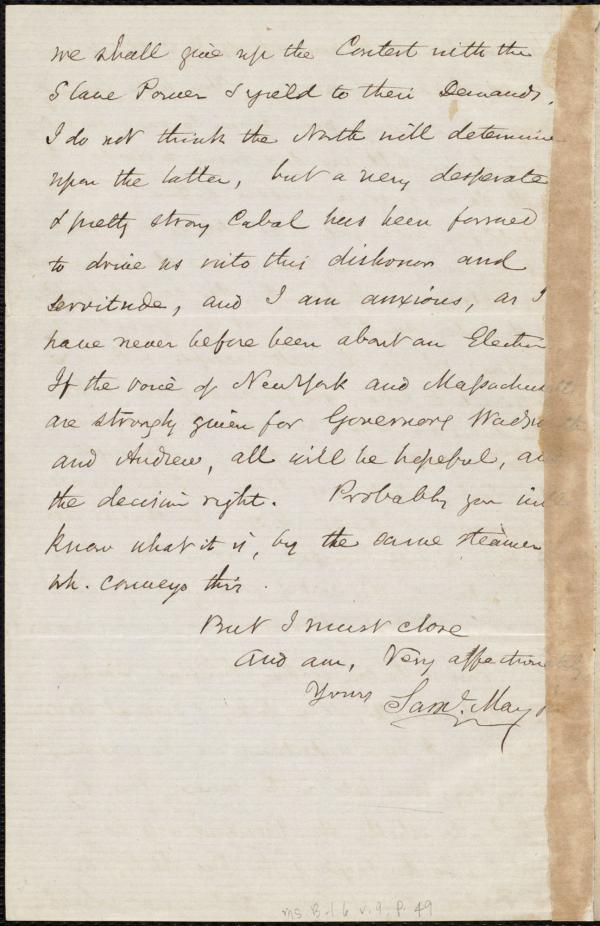 we shall give up the Contest with the
Slave Power & yield to their Demands.
I do not think the North will determine
upon the latter, but a very desperate
& pretty strong Cabal has been formed
to drive us into this dishonor and
servitude, and I am anxious, as I
have never before been about an Election
If the voice of New York and Massachusetts
are strongly given for Governors Wadsworth
and Andrew, all will be hopeful, and
the decision right. Probably you will
know what it is, by the same steamer
wh. conveys this.
But I must close
And am, Very affectionately
Yours Saml. May Jr.
ms. B.1.6 v.9, p. 49